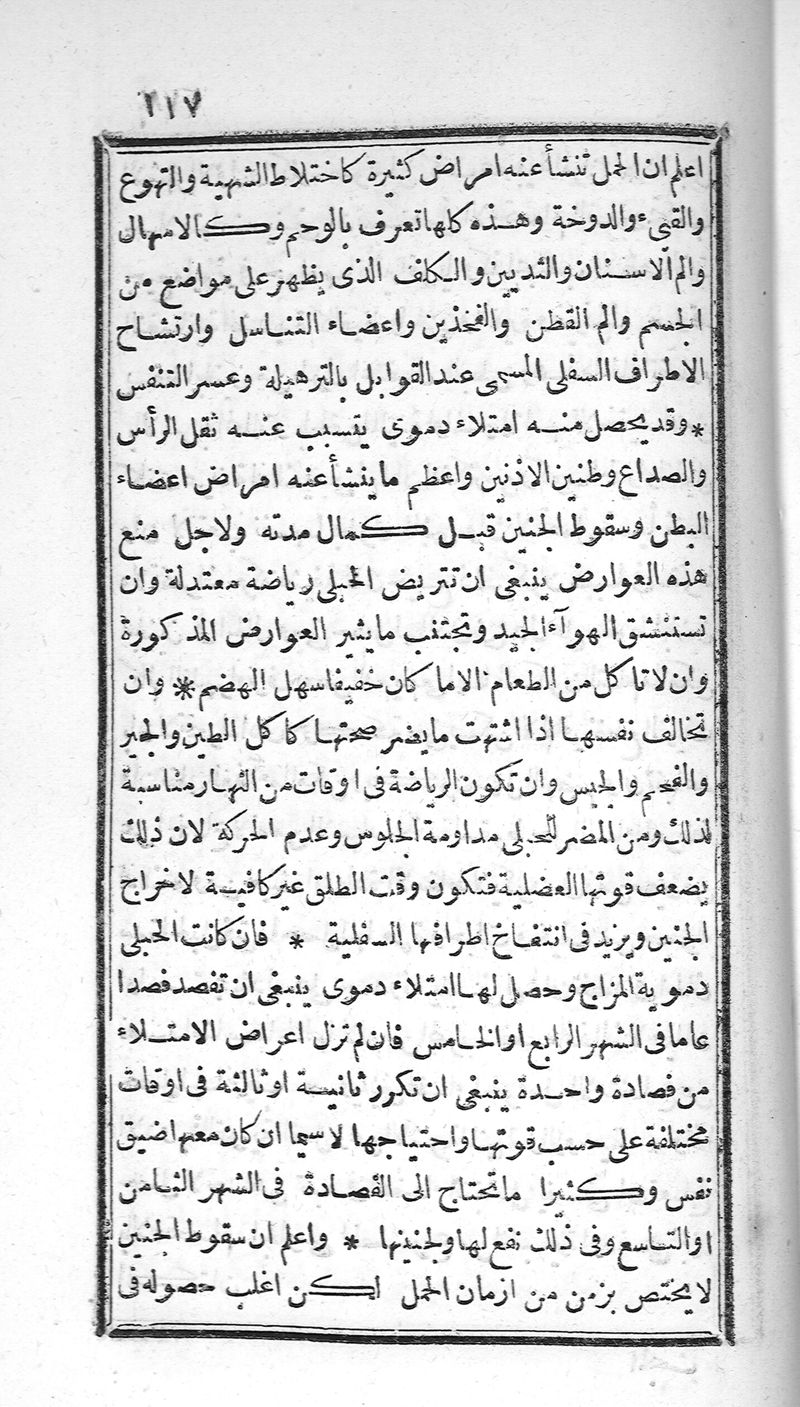 ٢١٧
اعلم ان الحمل تنشأ عنه امراض كثيرة كاختلاط الشهية والتهوع
والقيء والدوخة وهذه كلها تعرف بالوحم وكالامهال
والم الاسنان والثديين والكلف الذى يظهر على مواضع من
الجسم والم القطن والفخذين واعضاء التناسل وارتشاح
الاطراف السفلى المسمى عند القوابل بالترهيلة وعسر التنفس
* وقد يحصل منه امتلاء دموى يتسبب عنه ثقل الرأس
والصداع وطنين الاذنين واعظم ما ينشأ عنه امراض اعضاء
البطن وسقوط الجنين قبل كمال مدته ولاجل منع
هذه العوارض ينبغى ان تتريض الحبلى رياضة معتدلة وان
تستنشق الهوآء الجيد وتجتنب ما يثير العوارض المذكورة
وان لا تاكل من الطعام الا ما كان خفيفا سهل الهضم * وان
تخالف نفسها اذا اشتهت ما يضر صحتها كاكل الطين والجير
والفحم والجبس وان تكون الرياضة فى اوقات من النهار مناسبة
لذلك ومن المضر للحبلى مداومة الجلوس وعدم الحركة لان ذلك
يضعف قوتها العضلية فتكون وقت الطلق غير كافية لاخراج
الجنين ويزيد فى انتفاخ اطرافها السفلية * فان كانت الحبلى
دموية المزاج وحصل لها امتلاء دموى ينبغى ان تفصد فصدا
عاما فى الشهر الرابع او الخامس فان لم تزل اعراض الامتلاء
من فصادة واحدة ينبغى ان تكرر ثانية او ثالثة فى اوقات
مختلفة على حسب قوتها واحتياجها لا سيما ان كان معها ضيق
نفس وكثيرا ما تحتاج الى الفصادة فى الشهر الثامن
او التاسع وفى ذلك نفع لها ولجنينها * واعلم ان سقوط الجنين
لا يختص بزمن من ازمان الحمل لكن اغلب حصوله فى